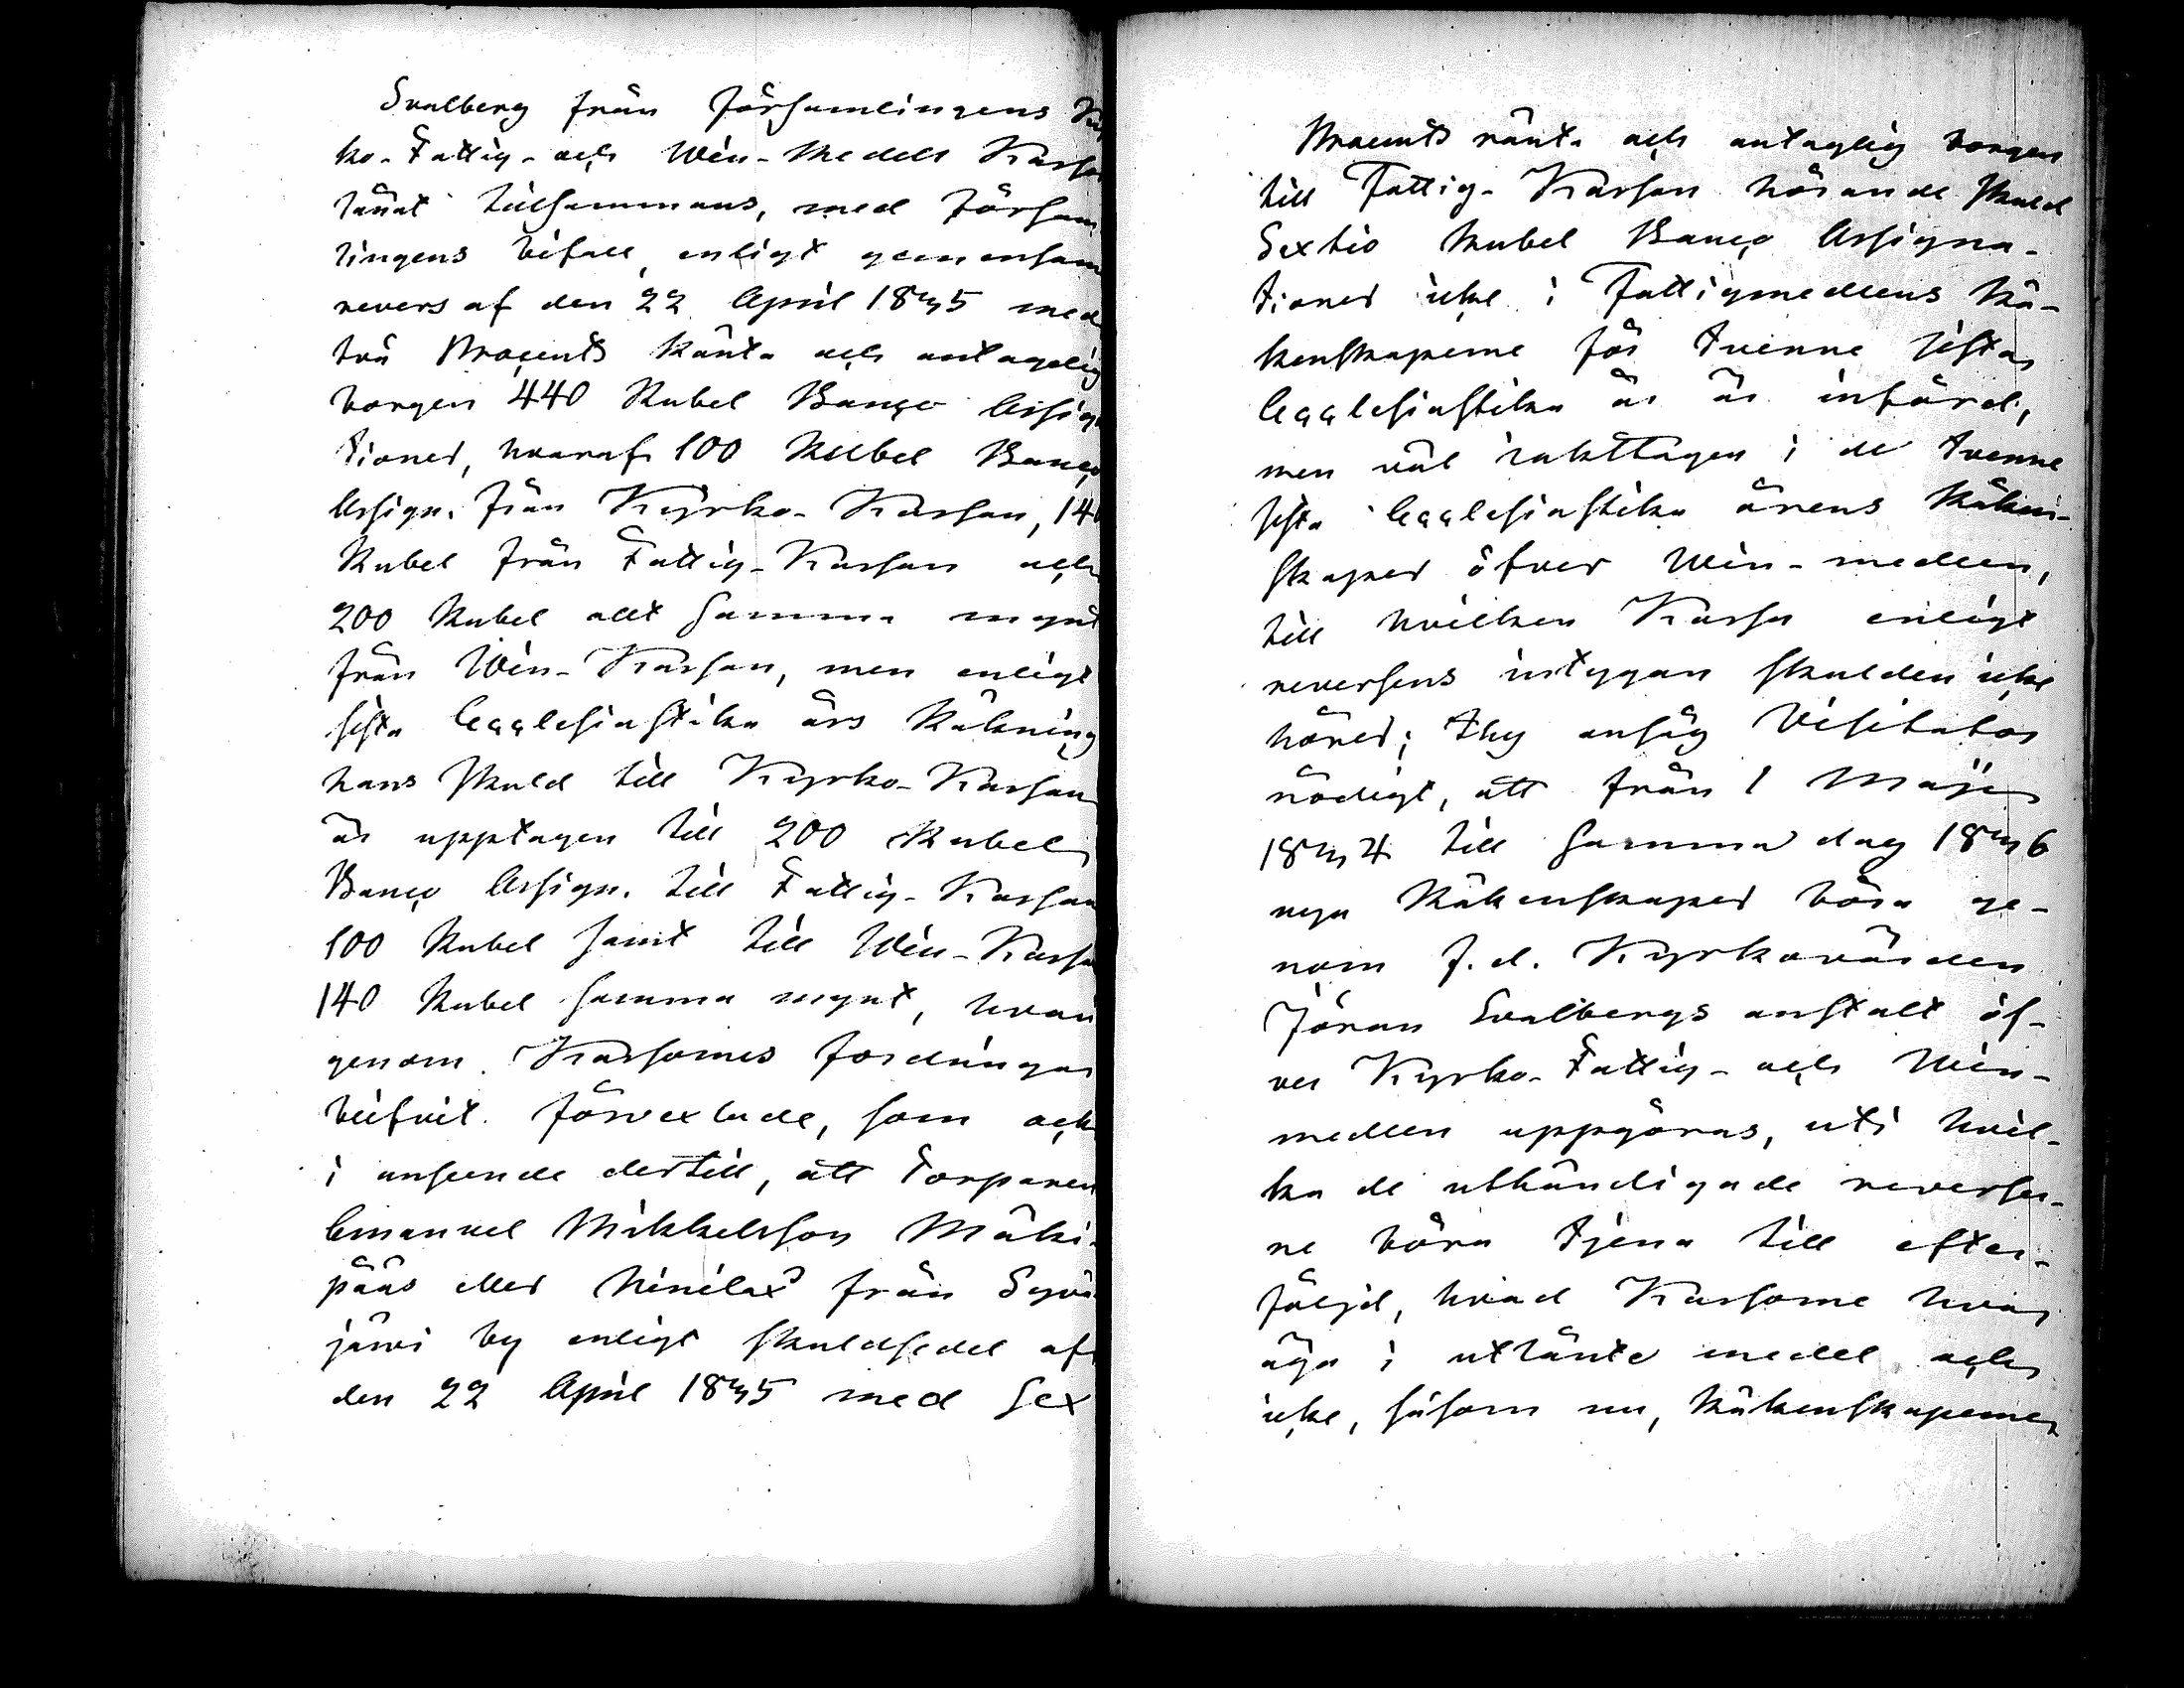 Svalberg från Församlingens Kyr
ko- Fattig- och Win-Medels Kassa
lånat tillsammans, med Försam
lingens bifall, enligt gemensam
revers af den 22 April 1835 med
två Procents Ränta och antagelig
borgen 440 Rubel Banco Assign
tioner, hvaraf 100 Rubel Banco
Assign. från Kyrko-Kassan, 140
Rubel från Fattig-Kassan och
200 Rubel allt samma mynt
från Win-Kassan, men enligt
sista Ecclesiastika års Räkning
hans skuld till Kyrko-Kassan
är upptagen till 200 Rubel
Banco Assign. till Fattig-Kassan
100 Rubel samt till Win-Kassa
140 Rubel samma mynt, hvari
genom Kassornes fordringar
blifvit förvexlade, som ock
i anseende dertill, att Torparen
Emanuel Mikkelsson Mäki-
pääs eller Hinilax från Syvä
järvi by enligt skuldsedel af
den 22 April 1835 med sex
Procents ränta och antaglig borgen
till Fattig-Kassan hörande skuld
Sextio Rubel Banco Assigna-
tioner icke i Fattigmedlens Rä-
kenskaperne för tvenne sistar
Ecclesiastika år är införd,
men väl iakttagen i de tvenne
sista Ecclesiastika årens Räken-
skaper öfver Win-medlen,
till hvilken Kassa enligt
reversens intygan skulden icke
hörer; thy ansåg Visitator
nödigt, att från 1 Maji
1834 till samma dag 1836
nya Räkenskaper böra ge-
nom f.d. Kyrkovärden
Jöran Svalbergs anstalt öf-
ver Kyrko- Fattig- och Win-
medlen uppgöras, uti hvil-
ka de uthändigade reverser-
ne böra tjena till efter-
följd, hvad Kassorne hvar
äga i utlånte medel och
icke, såsom nu, Räkenskaperne